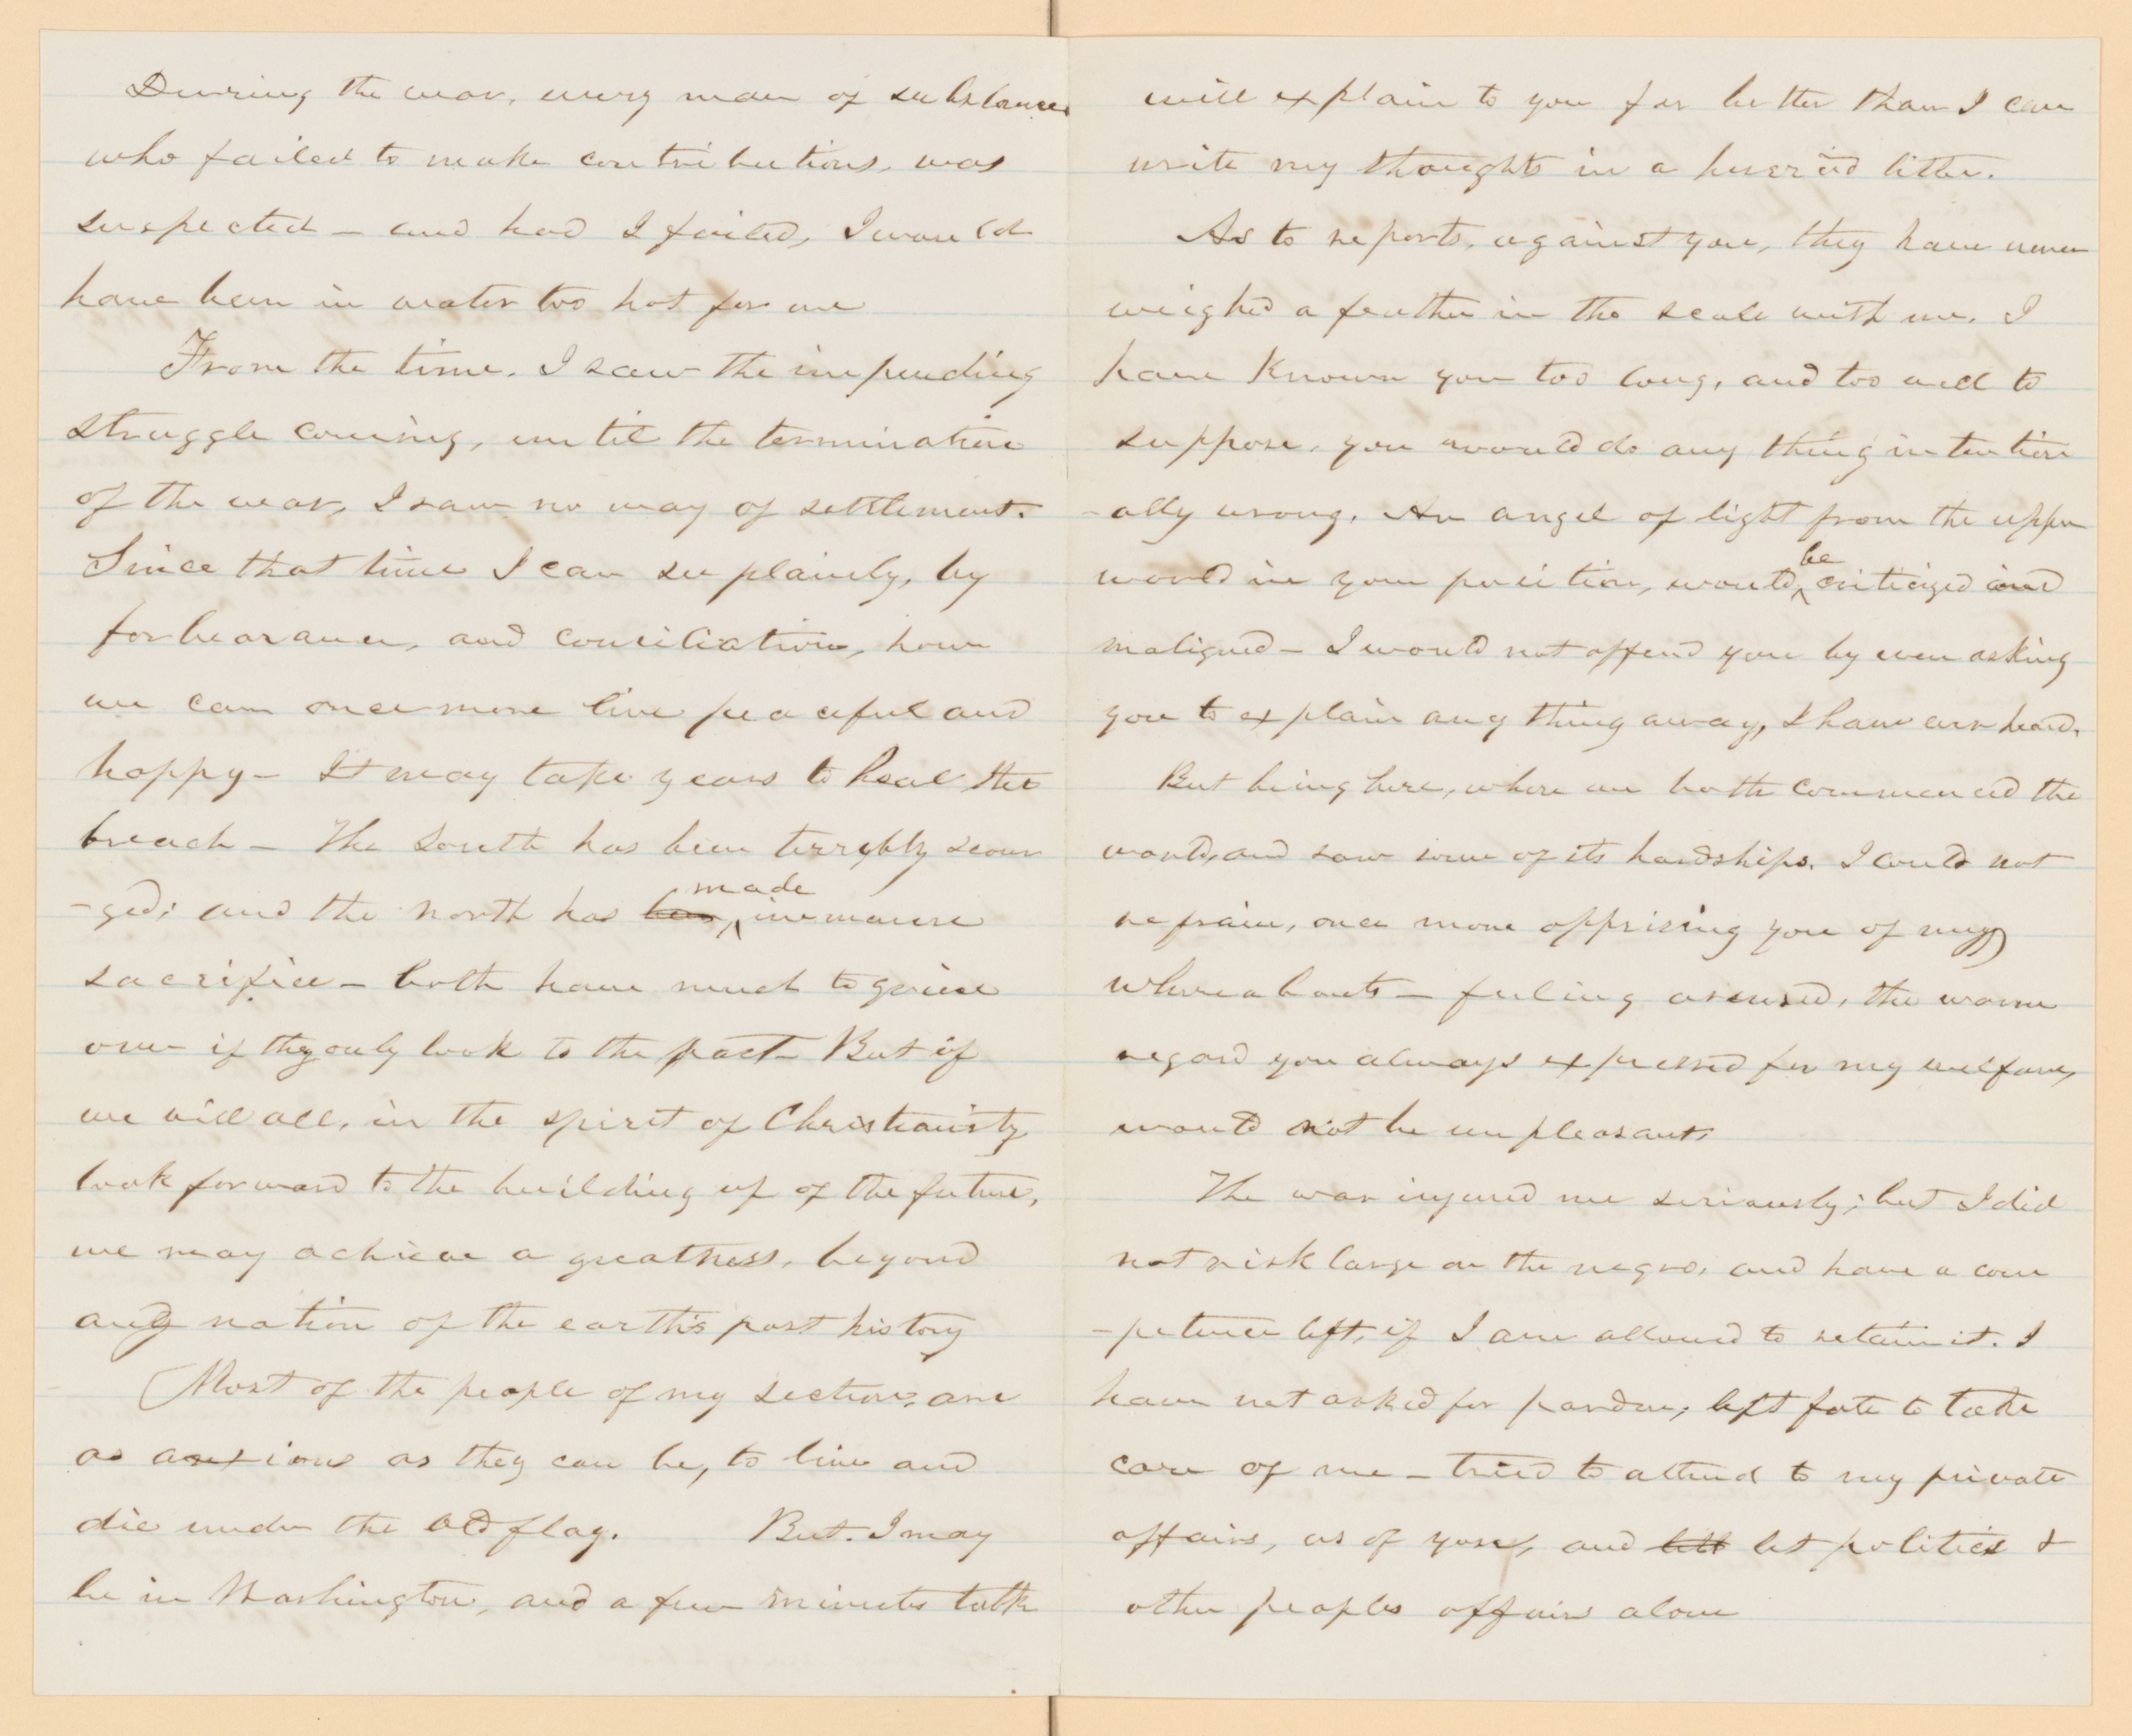 During the war, every man of substance
who failed to make contributions, was
suspected – and had I failed, I would
have been in water too hot for me
From the time, I saw the impending
struggle coming, until the termination
of the war, I saw no way of settlement.
Since that time I can see plainly, by
forbearance, and conciliation, how
we can once more live peaceful and
happy – It may take years to heal the
breach – The South has been terrybly scour
-ged; and the north has been made immense
sacrifice – both have much to grieve
over if they only look to the past – But if
we will all, in the spirit of Christianity
look forward to the building up of the future,
we may achieve a greatness, beyond
any nation of the earth's past history
Most of the people of my section, are
as anxious as they can be, to live and
die under the old flag. But I may
be in Washington, and a few minutes talk
will explain to you far better than I can
write my thoughts in a hurried letter.
As to reports, against you, they have never
weighed a feather in the scale with me. I
have known you too long, and too well to
suppose, you would do any thing intention
-ally wrong. An angel of light from the upper
world in your position, would be criticized and
maligned – I would not offend you by even asking
you to explain any thing away, I have ever heard.
But being here, where we both commenced the
world, and saw some of its hardships. I could not
refrain, once more apprising you of my
whereabouts – feeling assured, the warm
regard you always expressed for my welfare,
would not be unpleasant.
The war injured me seriously; but I did
not risk large on the negro, and have a com
-petence left, if I am allowed to retain it. I
have not asked for pardon; left fate to take
care of me – tried to attend to my private
affairs, as of yore, and left let politics &
other peoples affairs alone